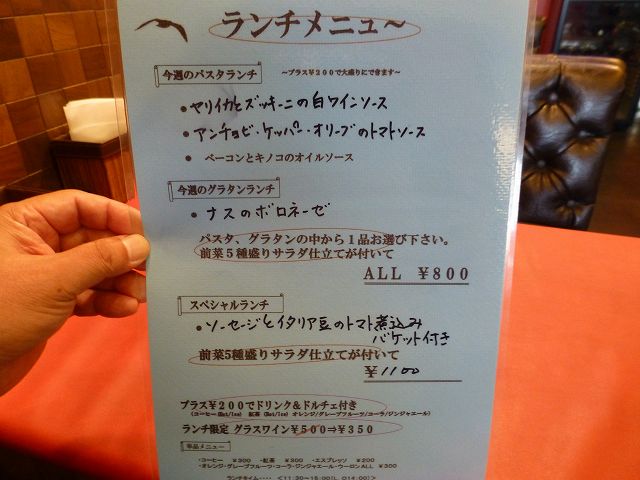 ランチメニュ～
今週のパスタランチ ～プラス¥200で大盛りにできます～
● ヤリイカとズッキーニの白ワインソース
● アンチョビ・ケッパー・オリーブのトマトソース
● ベーコンとキノコのオイルソース
今週のグラタンランチ
● ナスのボロネーゼ
パスタ、グラタンの中から１品お選び下さい。
前菜５種盛りサラダ仕立てが付いて
ALL ¥800
スペシャルランチ
● ソーセージとイタリア豆のトマト煮込み
バケット付き
前菜5種盛りサラダ仕立てが付いて
¥1100
プラス¥２００でドリンク＆ドルチェ付き
(コーヒー(Hot/Ice) 紅茶(Hot/Ice) オレンジ/グレープフルーツ/コーラ/ジンジャエール)
ランチ限定 グラスワイン¥500⇒¥350
単品メニュー
・コーヒー ¥300 ・紅茶 ¥300 ・エスプレッソ ¥200
・オレンジ・グレープフルーツ・コーラ・ジンジャエール・ウーロン ALL ¥300
ランチタイム・・・・ <11:30～15:00(L.O14:00)>